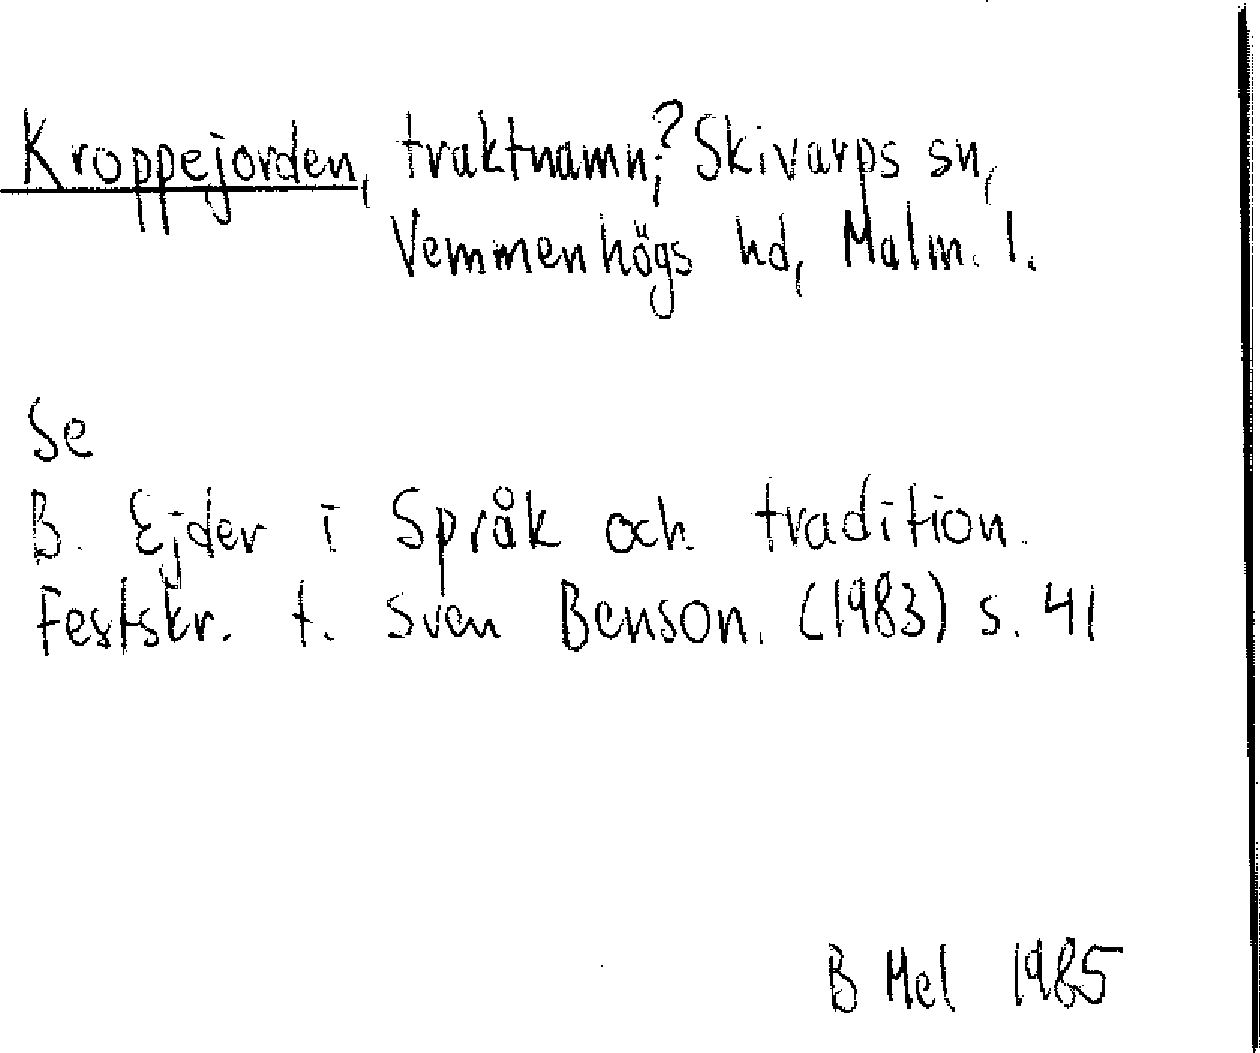 Kroppejorden, traktnamn,? Skivarps sn,
Vemmenhögs hd, Malm. l.
Se
B. Ejder i Språk och tradition.
Festskr. t. Sven Benson. (1983) s. 41
B Mel 1985